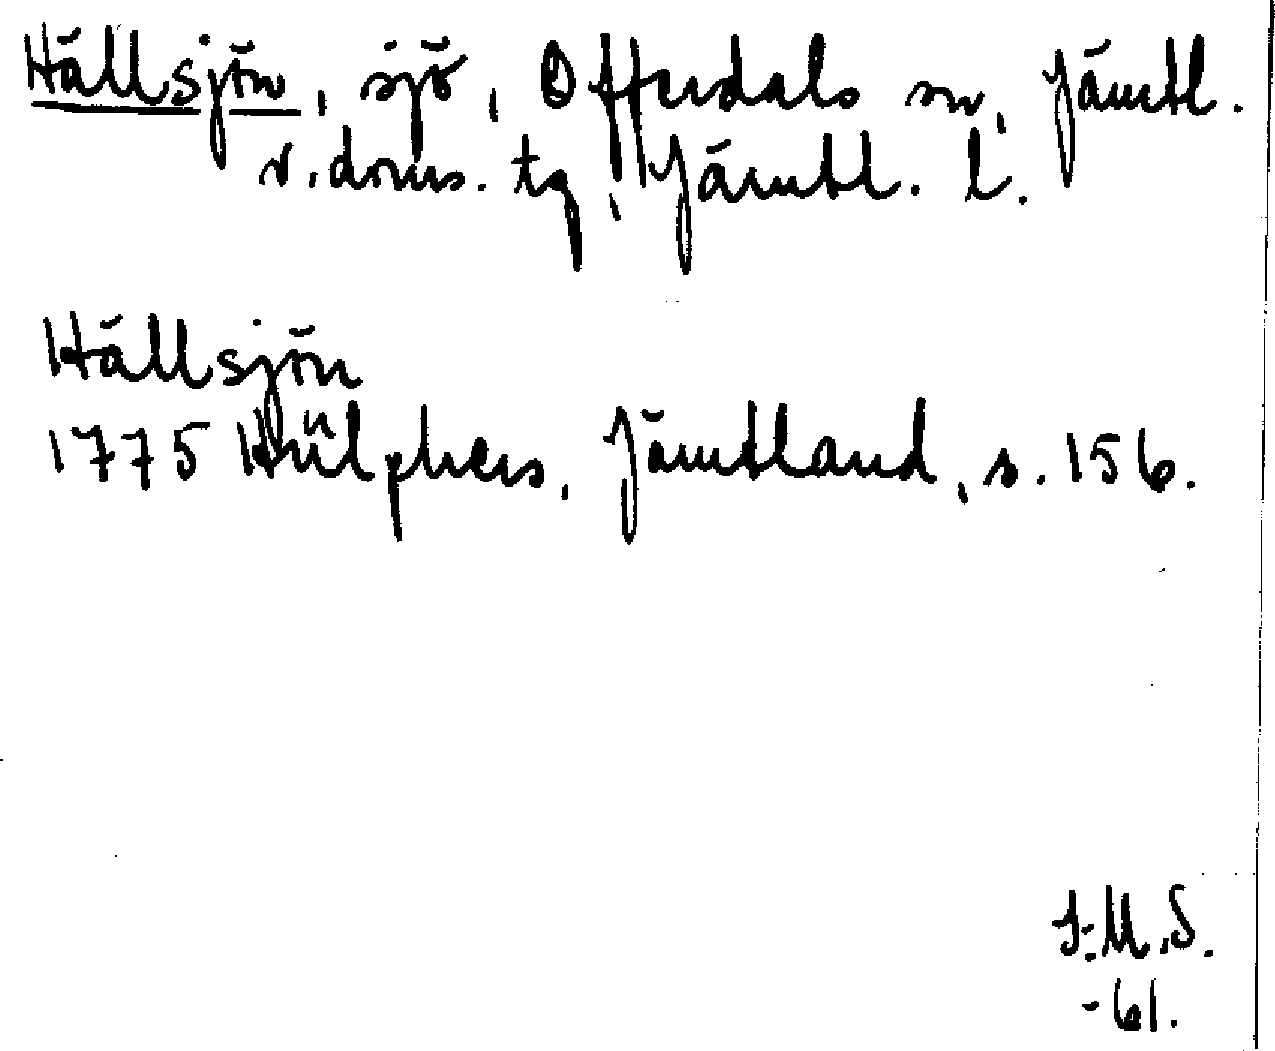 Hällsjön, sjö, Offerdals sn, Jämtl.
v. doms. tg, Jämtl. l.
Hällsjön
1775 Hülphers, Jämtland, s. 156.
I.M.S.
-61.